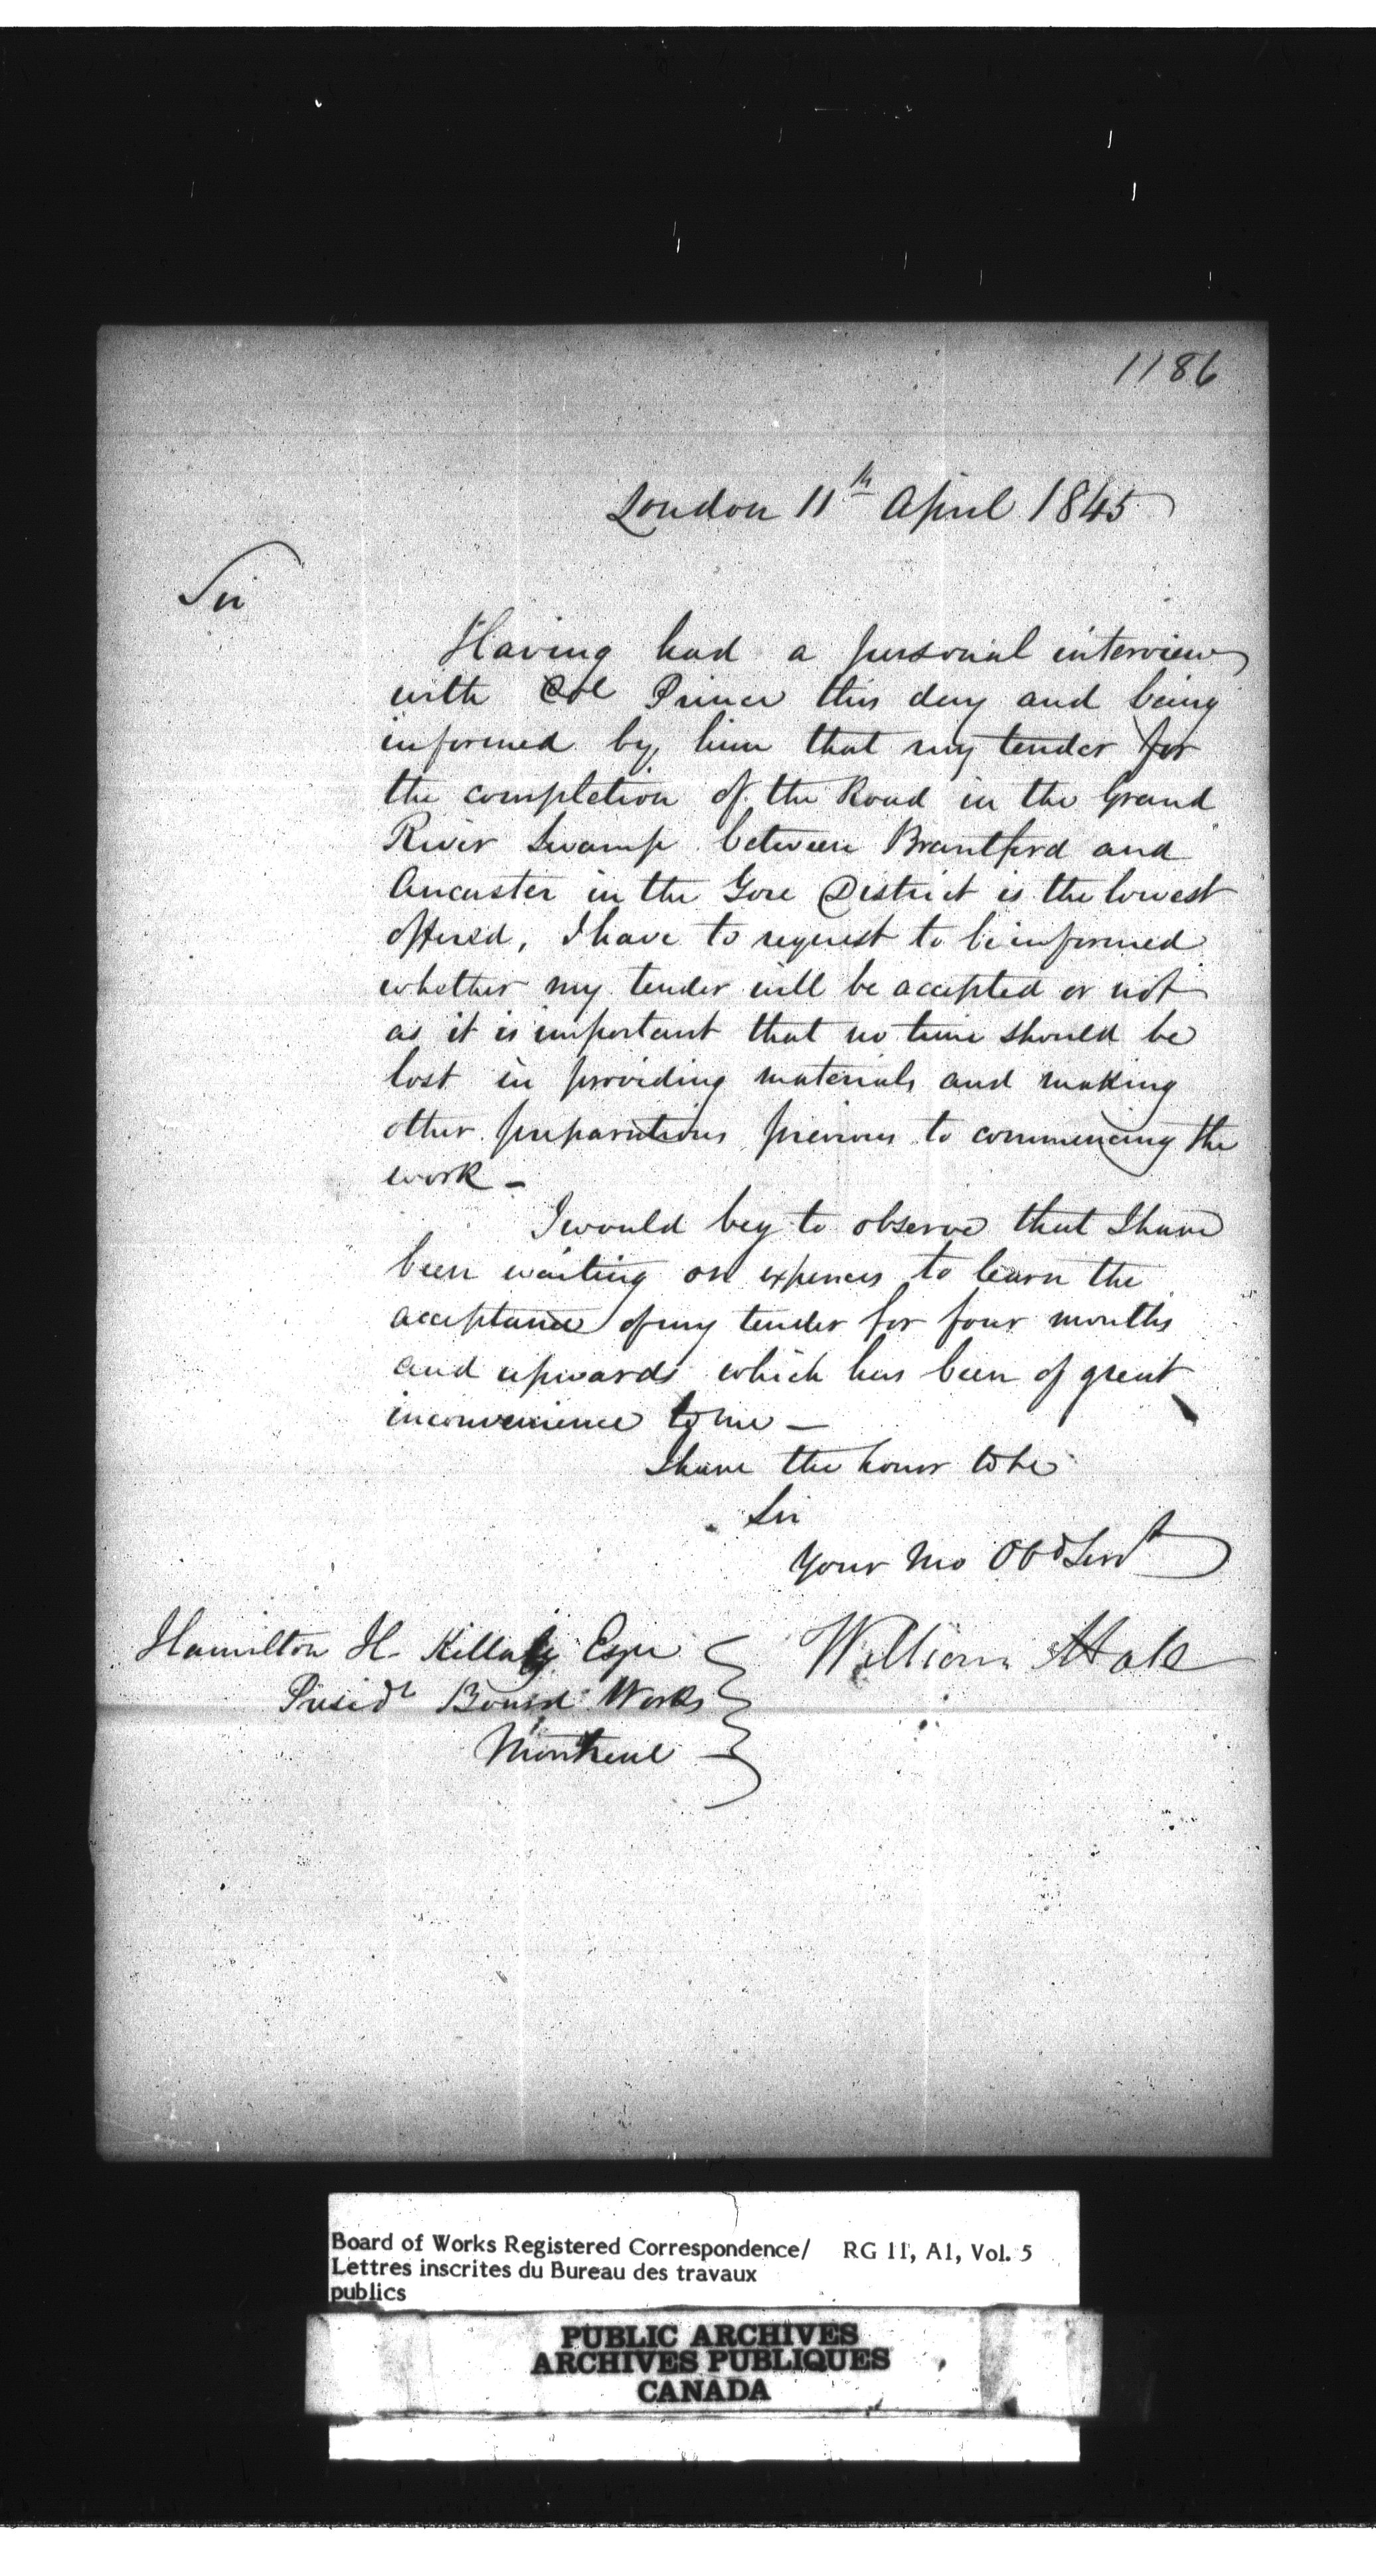 1186
London 11th April 1845
Sir
Having had a personal interview
with Col Prince this day and being
informed by him that my tender for
the completion of the Road in the Grand
River Swamp between Brantford and
Ancaster in the Gore District is the lowest
offered, I have to request to be informed
whether my tender will be accepted or not
as it is important that no time should be
lost in providing materials and making
other preparations previous to commencing the
work -
I would beg to observe that I have
been waiting on expences to learn the
acceptance of my tender for four months
and upwards which has been of great
inconvenience to me -
I have the honor to be
Sir
Your Mo Obd Servt
William Hale
Hamilton H. Killaly Esqr
Presidt Board Works
Montreal
Board of Works Registered Correspondence/ RG 11, A1, Vol. 5
Lettres inscrites du Bureau des travaux
publics
PUBLIC ARCHIVES
ARCHIVES PUBLIQUES
CANADA